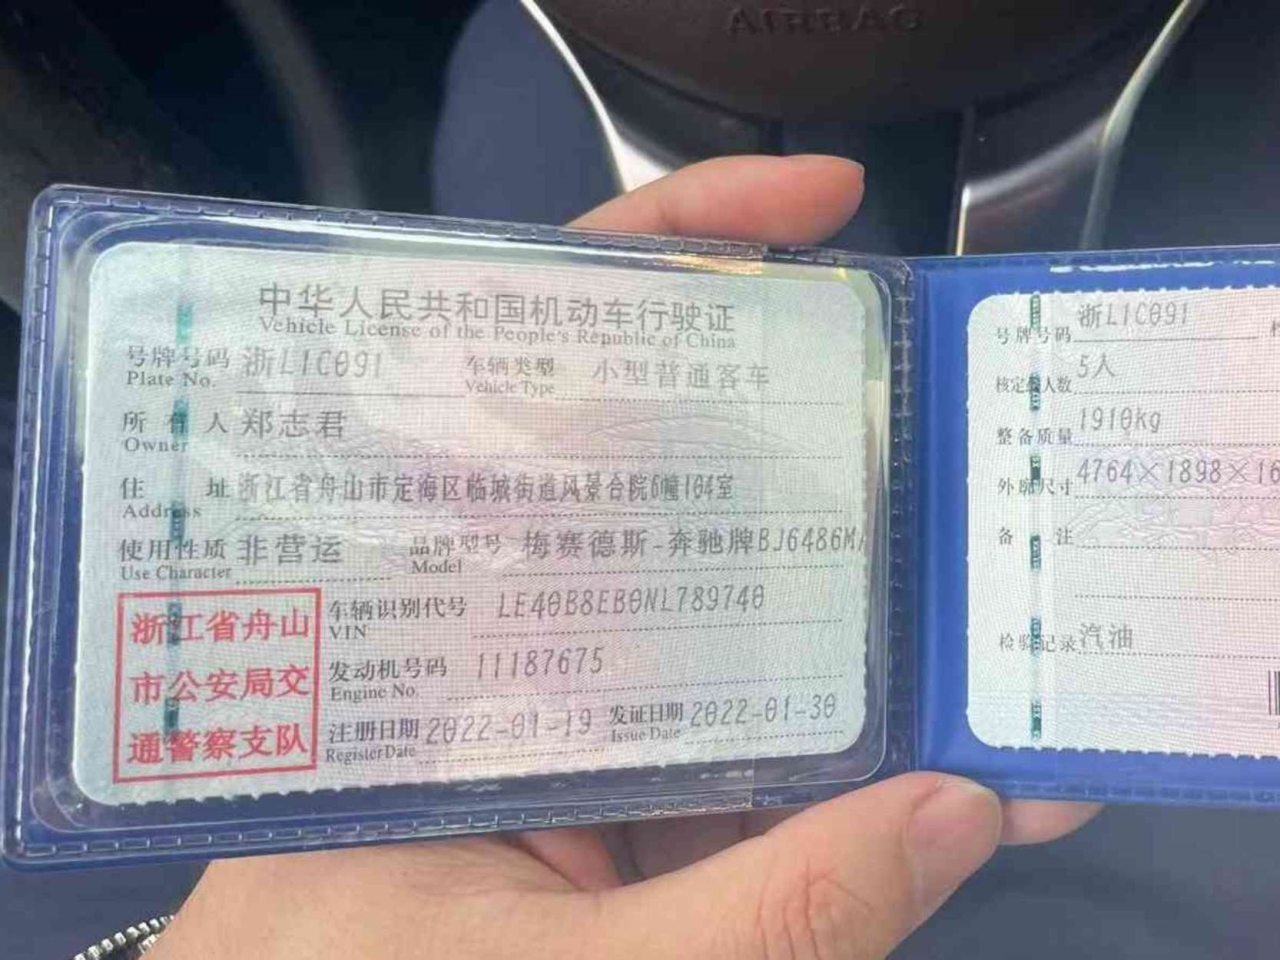 AIRBAG
中华人民共和国机动车行驶证
Vehicle License of the People's Republic of China
号牌号码 浙L1C091 车辆类型 小型普通客车
Plate No. Vehicle Type
所有人 郑志君
Owner
住址 浙江省舟山市定海区临城街道风景合院6幢104室
Address
使用性质 非营运 品牌型号 梅赛德斯-奔驰牌BJ6486M
Use Character Model
浙江省舟山
市公安局交
通警察支队
车辆识别代号 LE40B8EB0NL789740
VIN
发动机号码 11187675
Engine No.
注册日期 2022-01-19 发证日期 2022-01-30
Register Date Issue Date
号牌号码 浙L1C091
核定载人数 5人
整备质量 1910kg
外廓尺寸 4764×1898×16
备注
检验记录 汽油